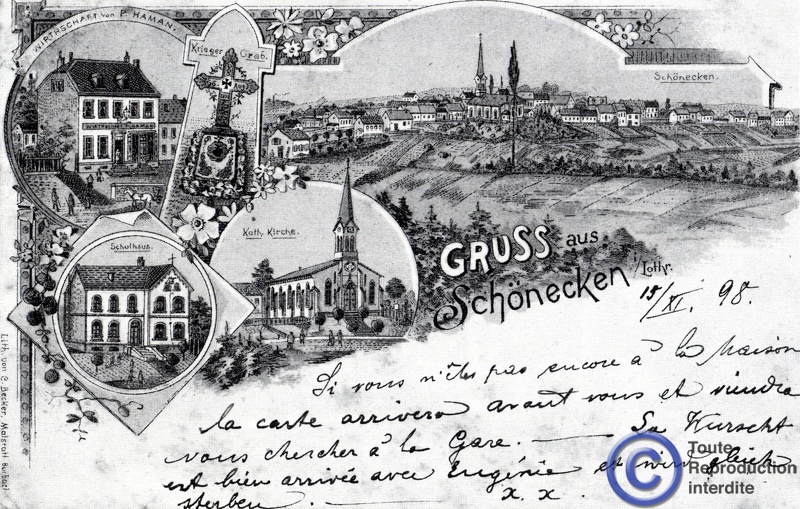 WIRTHSCHAFT von P. HAMAN.
Krieger Grab.
Schönecken.
WIRTHSCHAFT
Kath. Kirche.
Schulhaus.
GRUSS aus
Schönecken i/Lothr.
15/XI. 98.
Si vous n'êtes pas encore à la maison
la carte arrivera avant vous et viendra
vous chercher à la Gare. — Sa Wurscht
est bien arrivée avec Eugénie et wird gleich
sterben. — x. x.
Lith. von C. Becker, Malstatt Burbach
© Toute
Reproduction
interdite